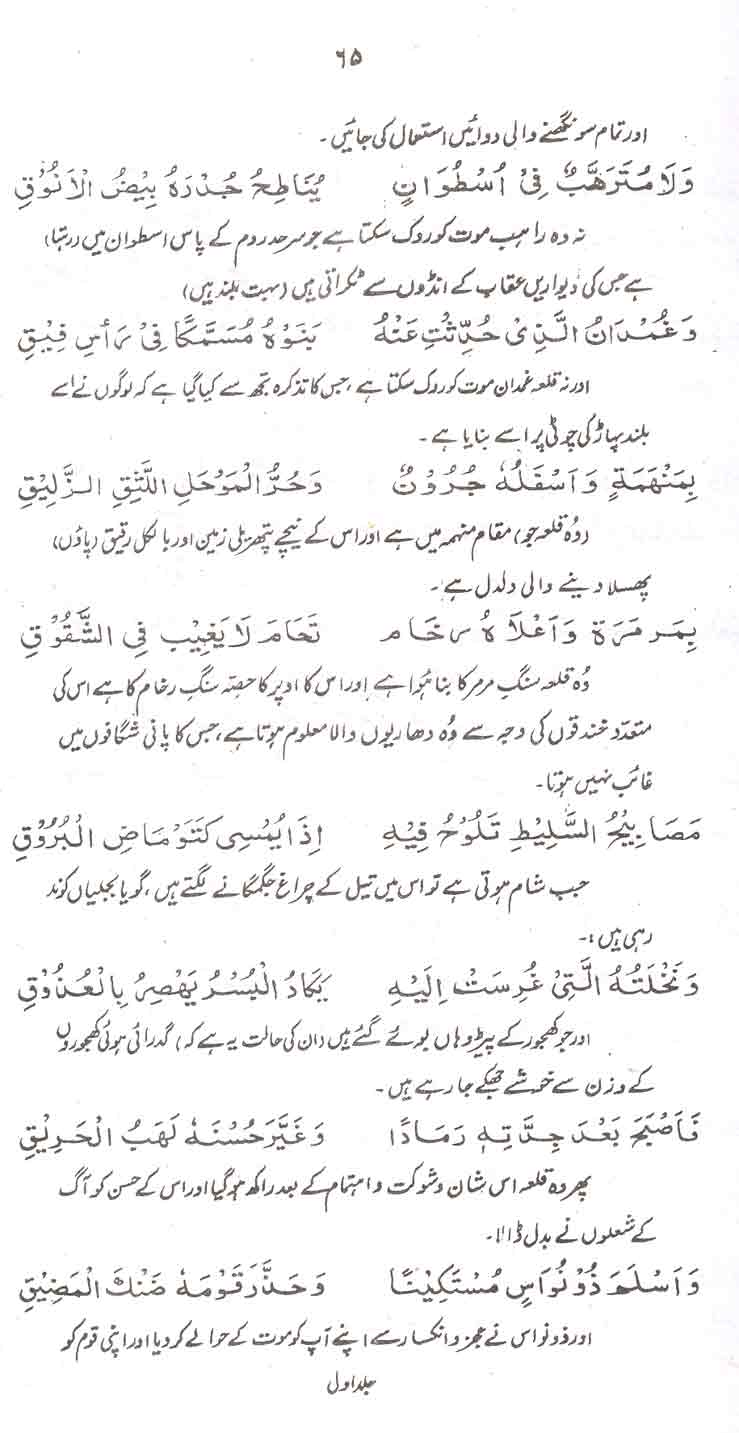 ۶۵
اور تمام سونگھنے والی دوائیں استعمال کی جائیں۔
وَلَا مُتَرَهَّبٌ فِیْ اُسْطُوَانٍ یُنَاطِحُ جُدْرَهُ بِیْضُ الْاَنُوْقِ
نہ وہ راہب موت کو روک سکتا ہے جو سرحد روم کے پاس اسطوان میں (رہتا)
ہے جس کی دیواریں عقاب کے انڈوں سے ٹکراتی ہیں (بہت بلند ہیں)
وَغُمْدَانُ الَّذِیْ حُدِّثْتِ عَنْهُ بَنَوْهُ مُسَمَّكًا فِیْ رَأْسِ فِیْقِ
اور نہ قلعہ غمدان موت کو روک سکتا ہے، جس کا تذکرہ تجھ سے کیا گیا ہے کہ لوگوں نے اسے
بلند پہاڑ کی چوٹی پر اسے بنایا ہے۔
بِمَنْهَمَةٍ وَاَسْفَلُهُ جُرُوْنٌ وَحُرُّ الْمَوْحَلِ اللَّثِقِ الزَّلِیْقِ
(وہ قلعہ جو) مقام منہمہ میں ہے اور اس کے نیچے پتھریلی زمین اور بالکل رقیق (پاؤں)
پھسلا دینے والی دلدل ہے۔
بِمَرْمَرَةٍ وَاَعْلَاهُ رُخَام تَحَامَ لَا یَغِیْب فِی الشُّقُوْقِ
وہ قلعہ سنگ مرمر کا بنا ہوا ہے اور اس کا اوپر کا حصہ سنگ رخام کا ہے اس کی
متعدد خندقوں کی وجہ سے وہ دھاریوں والا معلوم ہوتا ہے، جس کا پانی شگافوں میں
غائب نہیں ہوتا۔
مَصَابِیْحُ السَّلِیْطِ تَلُوْحُ فِیْهِ اِذَا یُمْسِی كَتَوْمَاضِ الْبُرُوْقِ
جب شام ہوتی ہے تو اس میں تیل کے چراغ جگمگانے لگتے ہیں، گویا بجلیاں کوند
رہی ہیں:۔
وَنَخْلَتُهُ الَّتِیْ غُرِسَتْ اِلَیْهِ یَكَادُ الْبُسْرُ یَهْصِرُ بِالْعُذُوْقِ
اور جو کھجور کے پیڑ وہاں بوئے گئے ہیں (ان کی حالت یہ ہے کہ) گدرائی ہوئی کھجوروں
کے وزن سے خوشے جھکے جا رہے ہیں۔
فَاَصْبَحَ بَعْدَ جِدَّتِهٖ رَمَادًا وَغَیَّرَ حُسْنَهٗ لَهَبُ الْحَرِیْقِ
پھر وہ قلعہ اس شان و شوکت و اہتمام کے بعد راکھ ہو گیا اور اس کے حسن کو آگ
کے شعلوں نے بدل ڈالا۔
وَاَسْلَمَ ذُوْنُوَاسٍ مُسْتَكِیْنًا وَحَذَّرَ قَوْمَهٗ ضَنْكَ الْمَضِیْقِ
اور ذونواس نے عجز و انکسار سے اپنے آپ کو موت کے حوالے کر دیا اور اپنی قوم کو
جلد اول